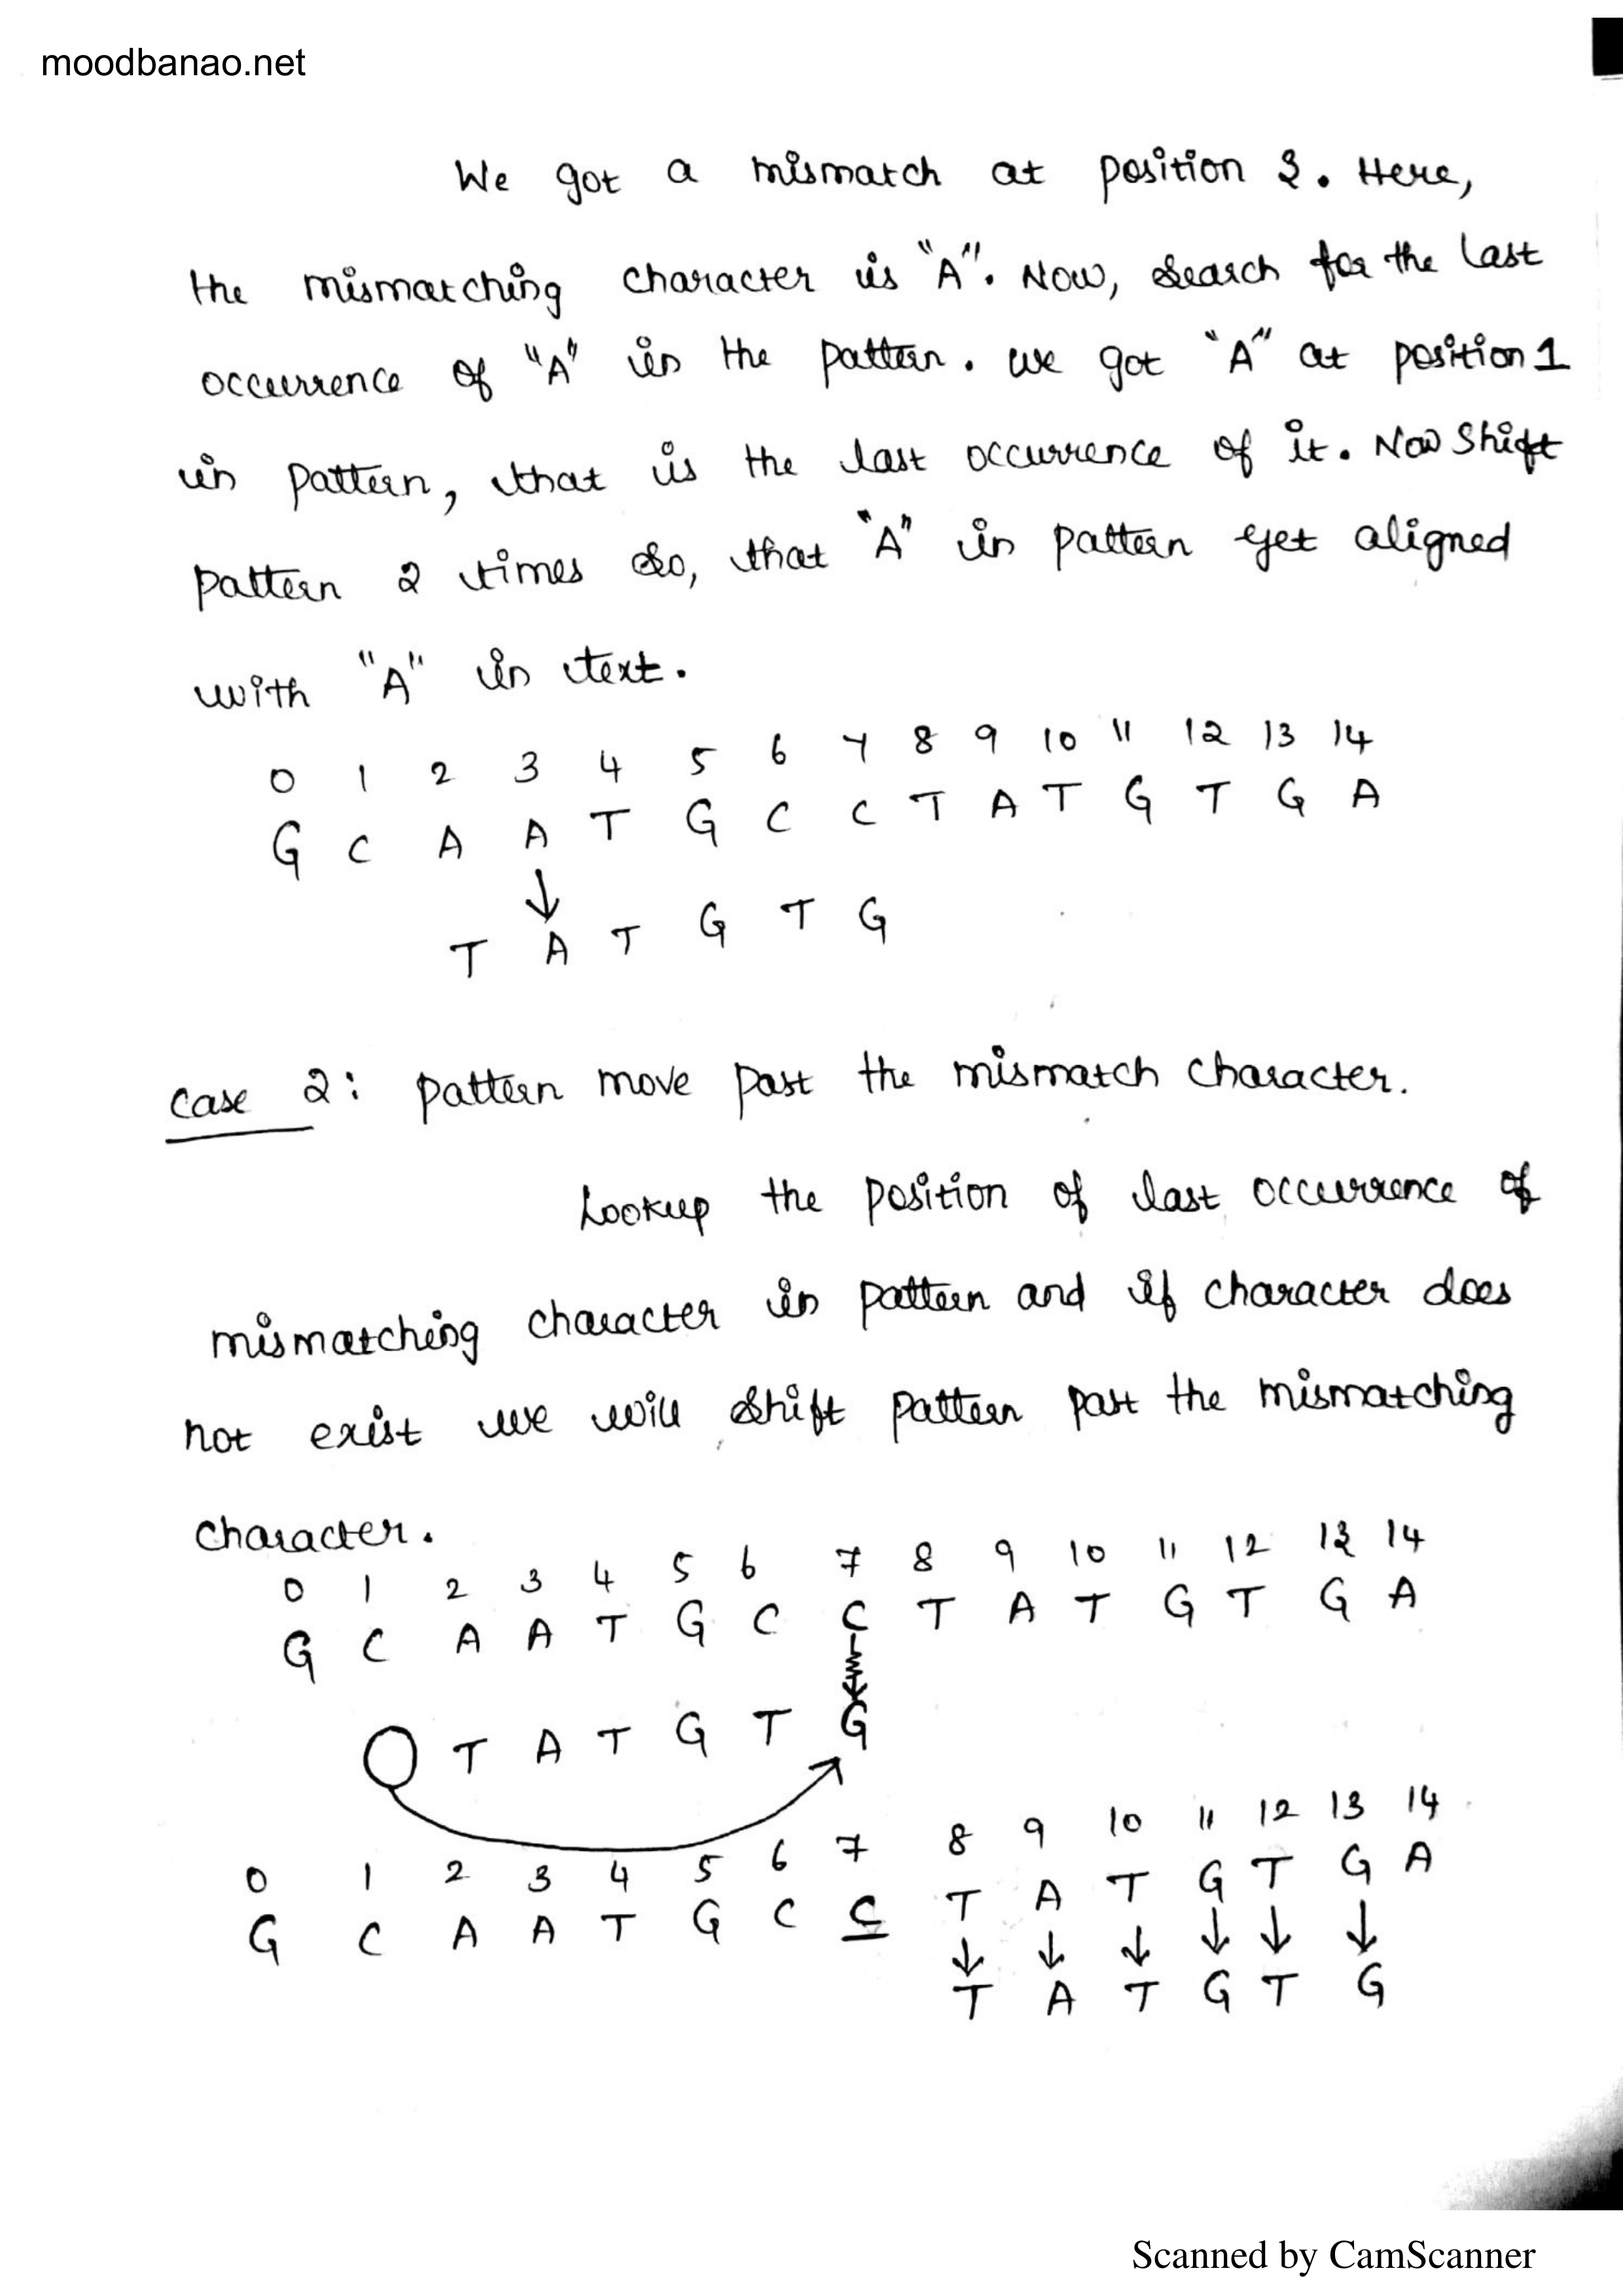 moodbanao.net
We got a mismatch at position 3. Here,
the mismatching character is "A". Now, search for the last
occurrence of "A" in the pattern. we got "A" at position 1
in pattern, that is the last occurrence of it. Now shift
pattern 2 times so, that "A" in pattern get aligned
with "A" in text.
0 1 2 3 4 5 6 7 8 9 10 11 12 13 14
G C A A T G C C T A T G T G A
T A T G T G
Case 2: pattern move past the mismatch character.
Lookup the position of last occurrence of
mismatching character in pattern and if character does
not exist we will shift pattern past the mismatching
character.
0 1 2 3 4 5 6 7 8 9 10 11 12 13 14
G C A A T G C C T A T G T G A
T A T G T G
0 1 2 3 4 5 6 7 8 9 10 11 12 13 14
G C A A T G C C T A T G T G A
T A T G T G
Scanned by CamScanner